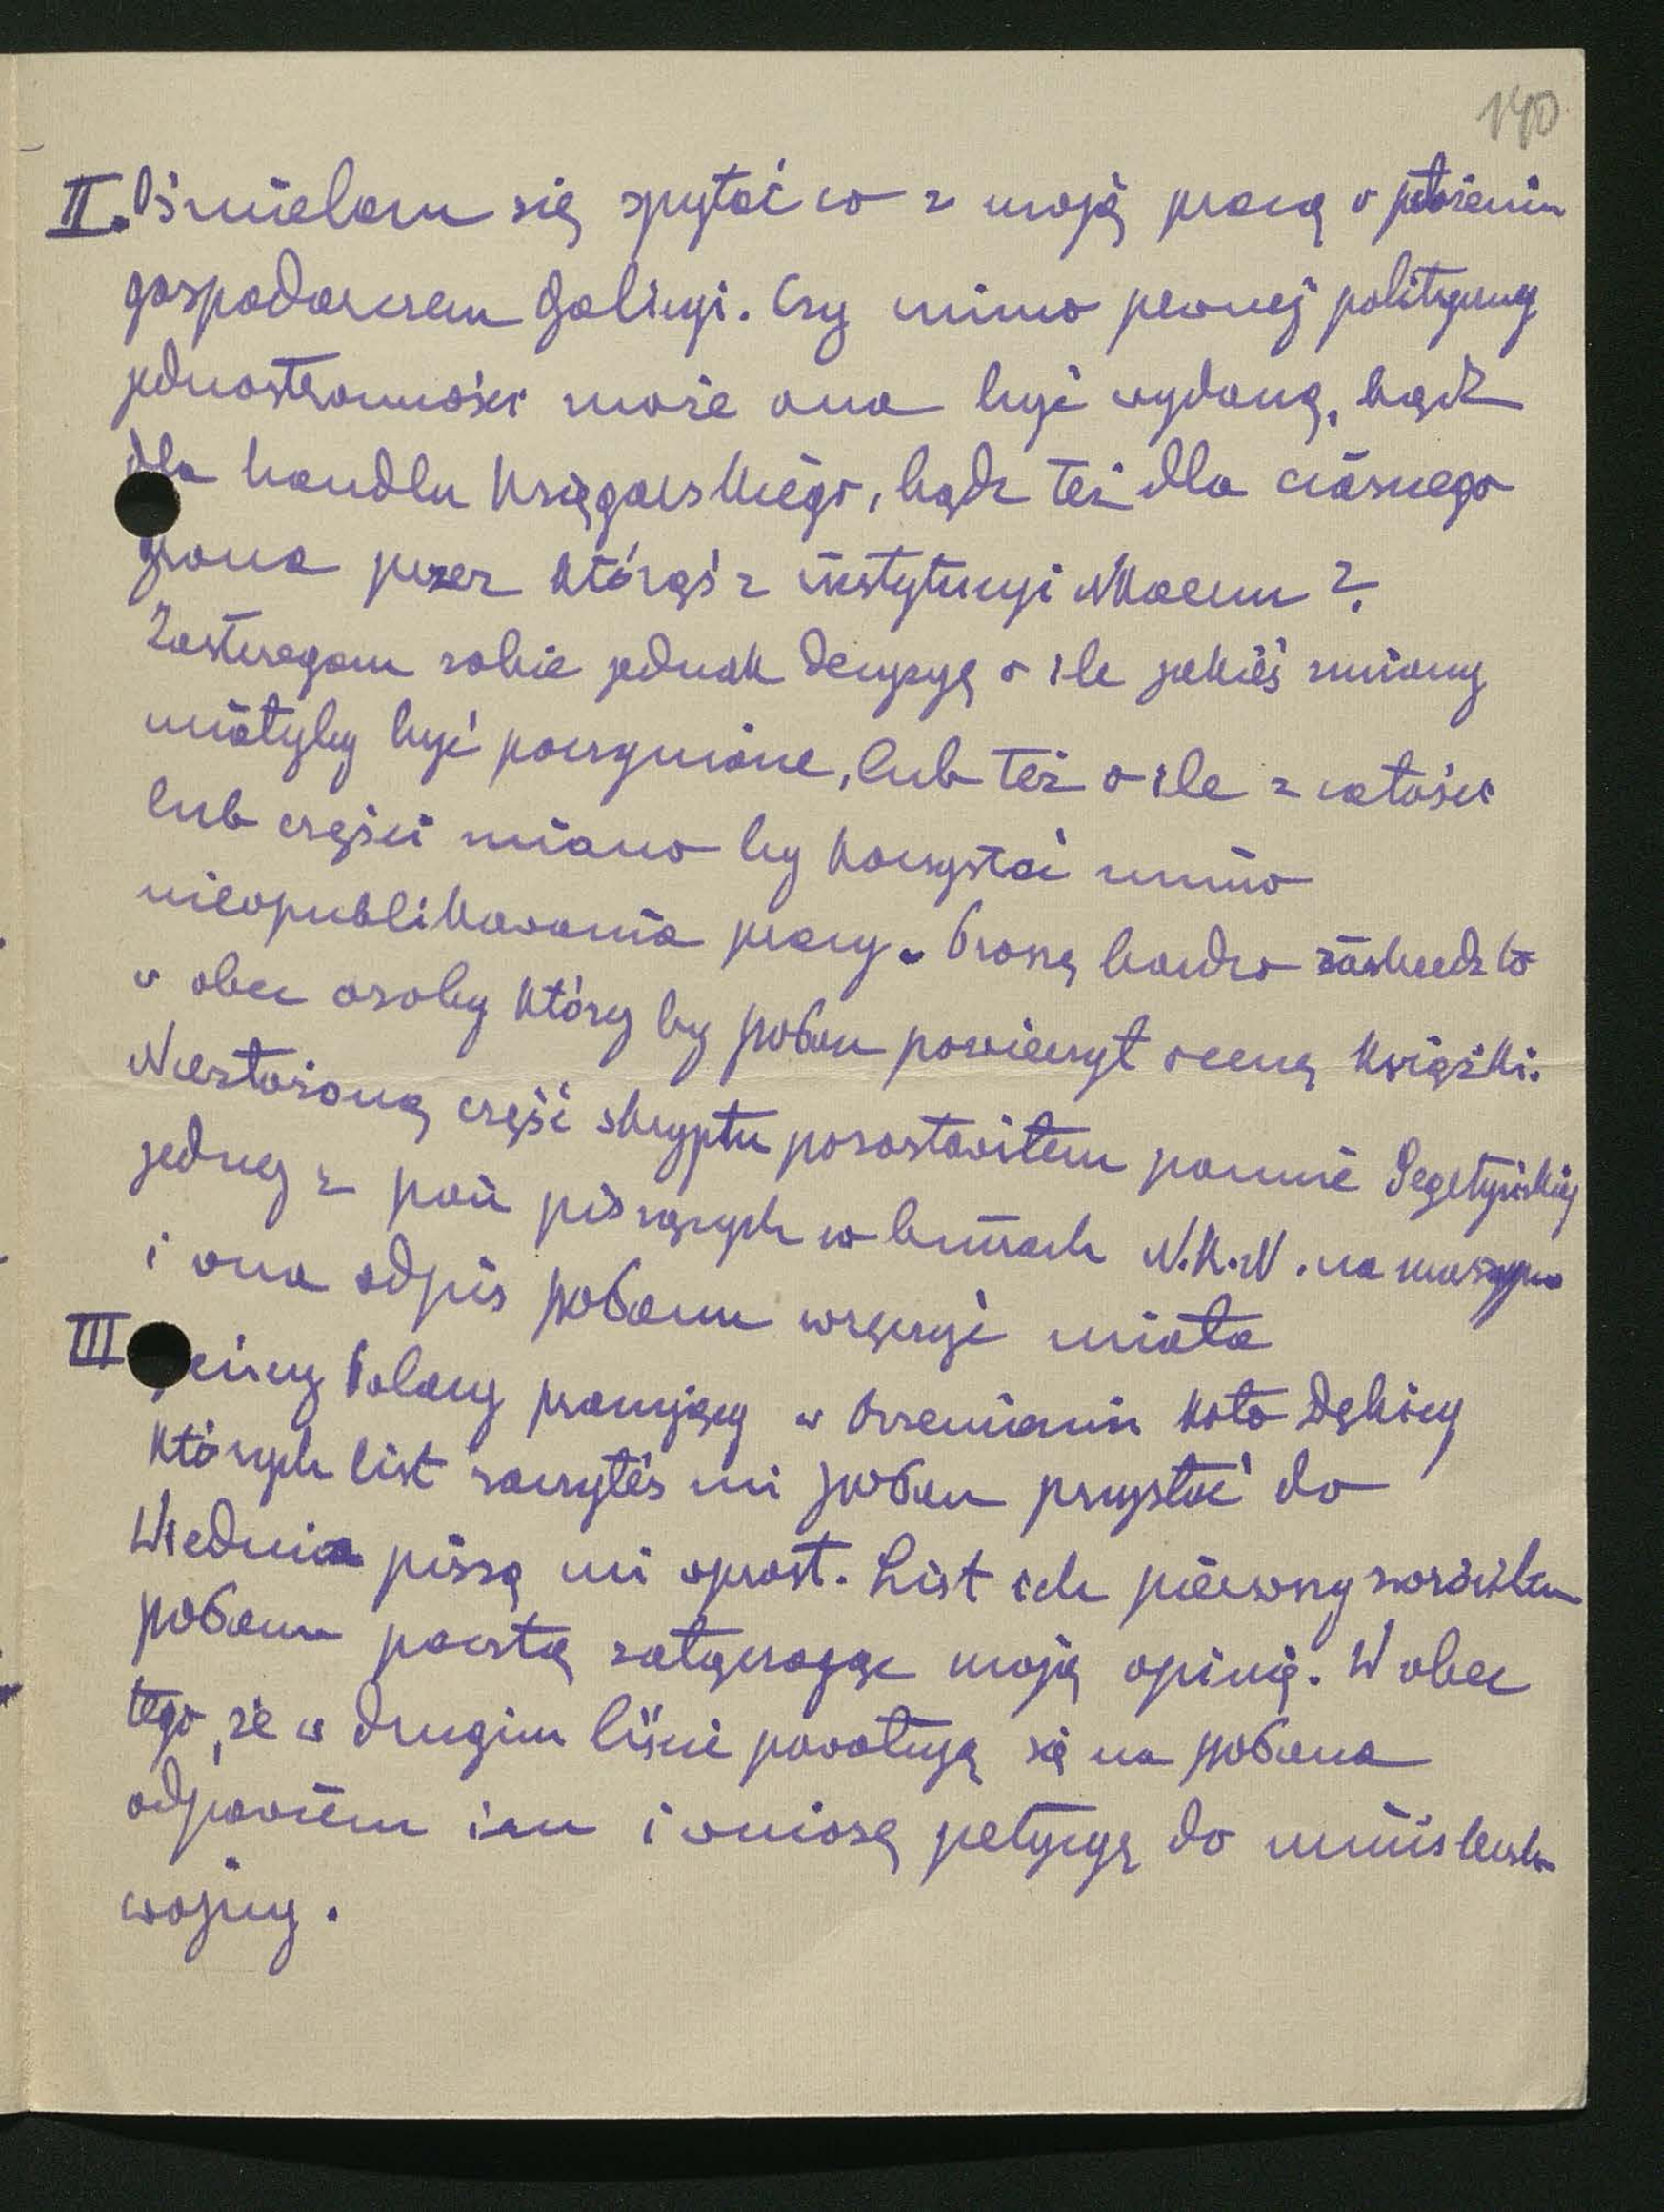 140
II. Ośmielam się spytać co z moją pracą o położeniu
gospodarczem Galicyi. Czy mimo pewnej politycznej
jednostronności może ona być wydaną, bądź
dla handlu księgarskiego, bądź też dla ciasnego
grona przez którąś z instytucyi NKaemu?
Zastrzegam sobie jednak decyzyę o ile jakieś zmiany
miałyby być poczynione, lub też o ile z całości
lub części miano by korzystać mimo
nieopublikowania pracy. Proszę bardzo to
w obec osoby której by poban powierzył ocenę książki.
Niezłożoną część skryptu pozostawiłem pannie
jednej z pań piszących w biurach N.K.N. na maszynie
i ona odpis pobanu wręczyć miała
III jeńcy Polacy pracujący w koło Dębicy
których list raczyłeś mi poban przysłać do
Wiednia piszą mi wprost. List ich pierwszy zwróciłem
pobanu pocztą załączając moją opinię. W obec
tego, że w drugim liście powołują się na pobana
odpowiem im i wniosę petycyę do ministerstwa
wojny.